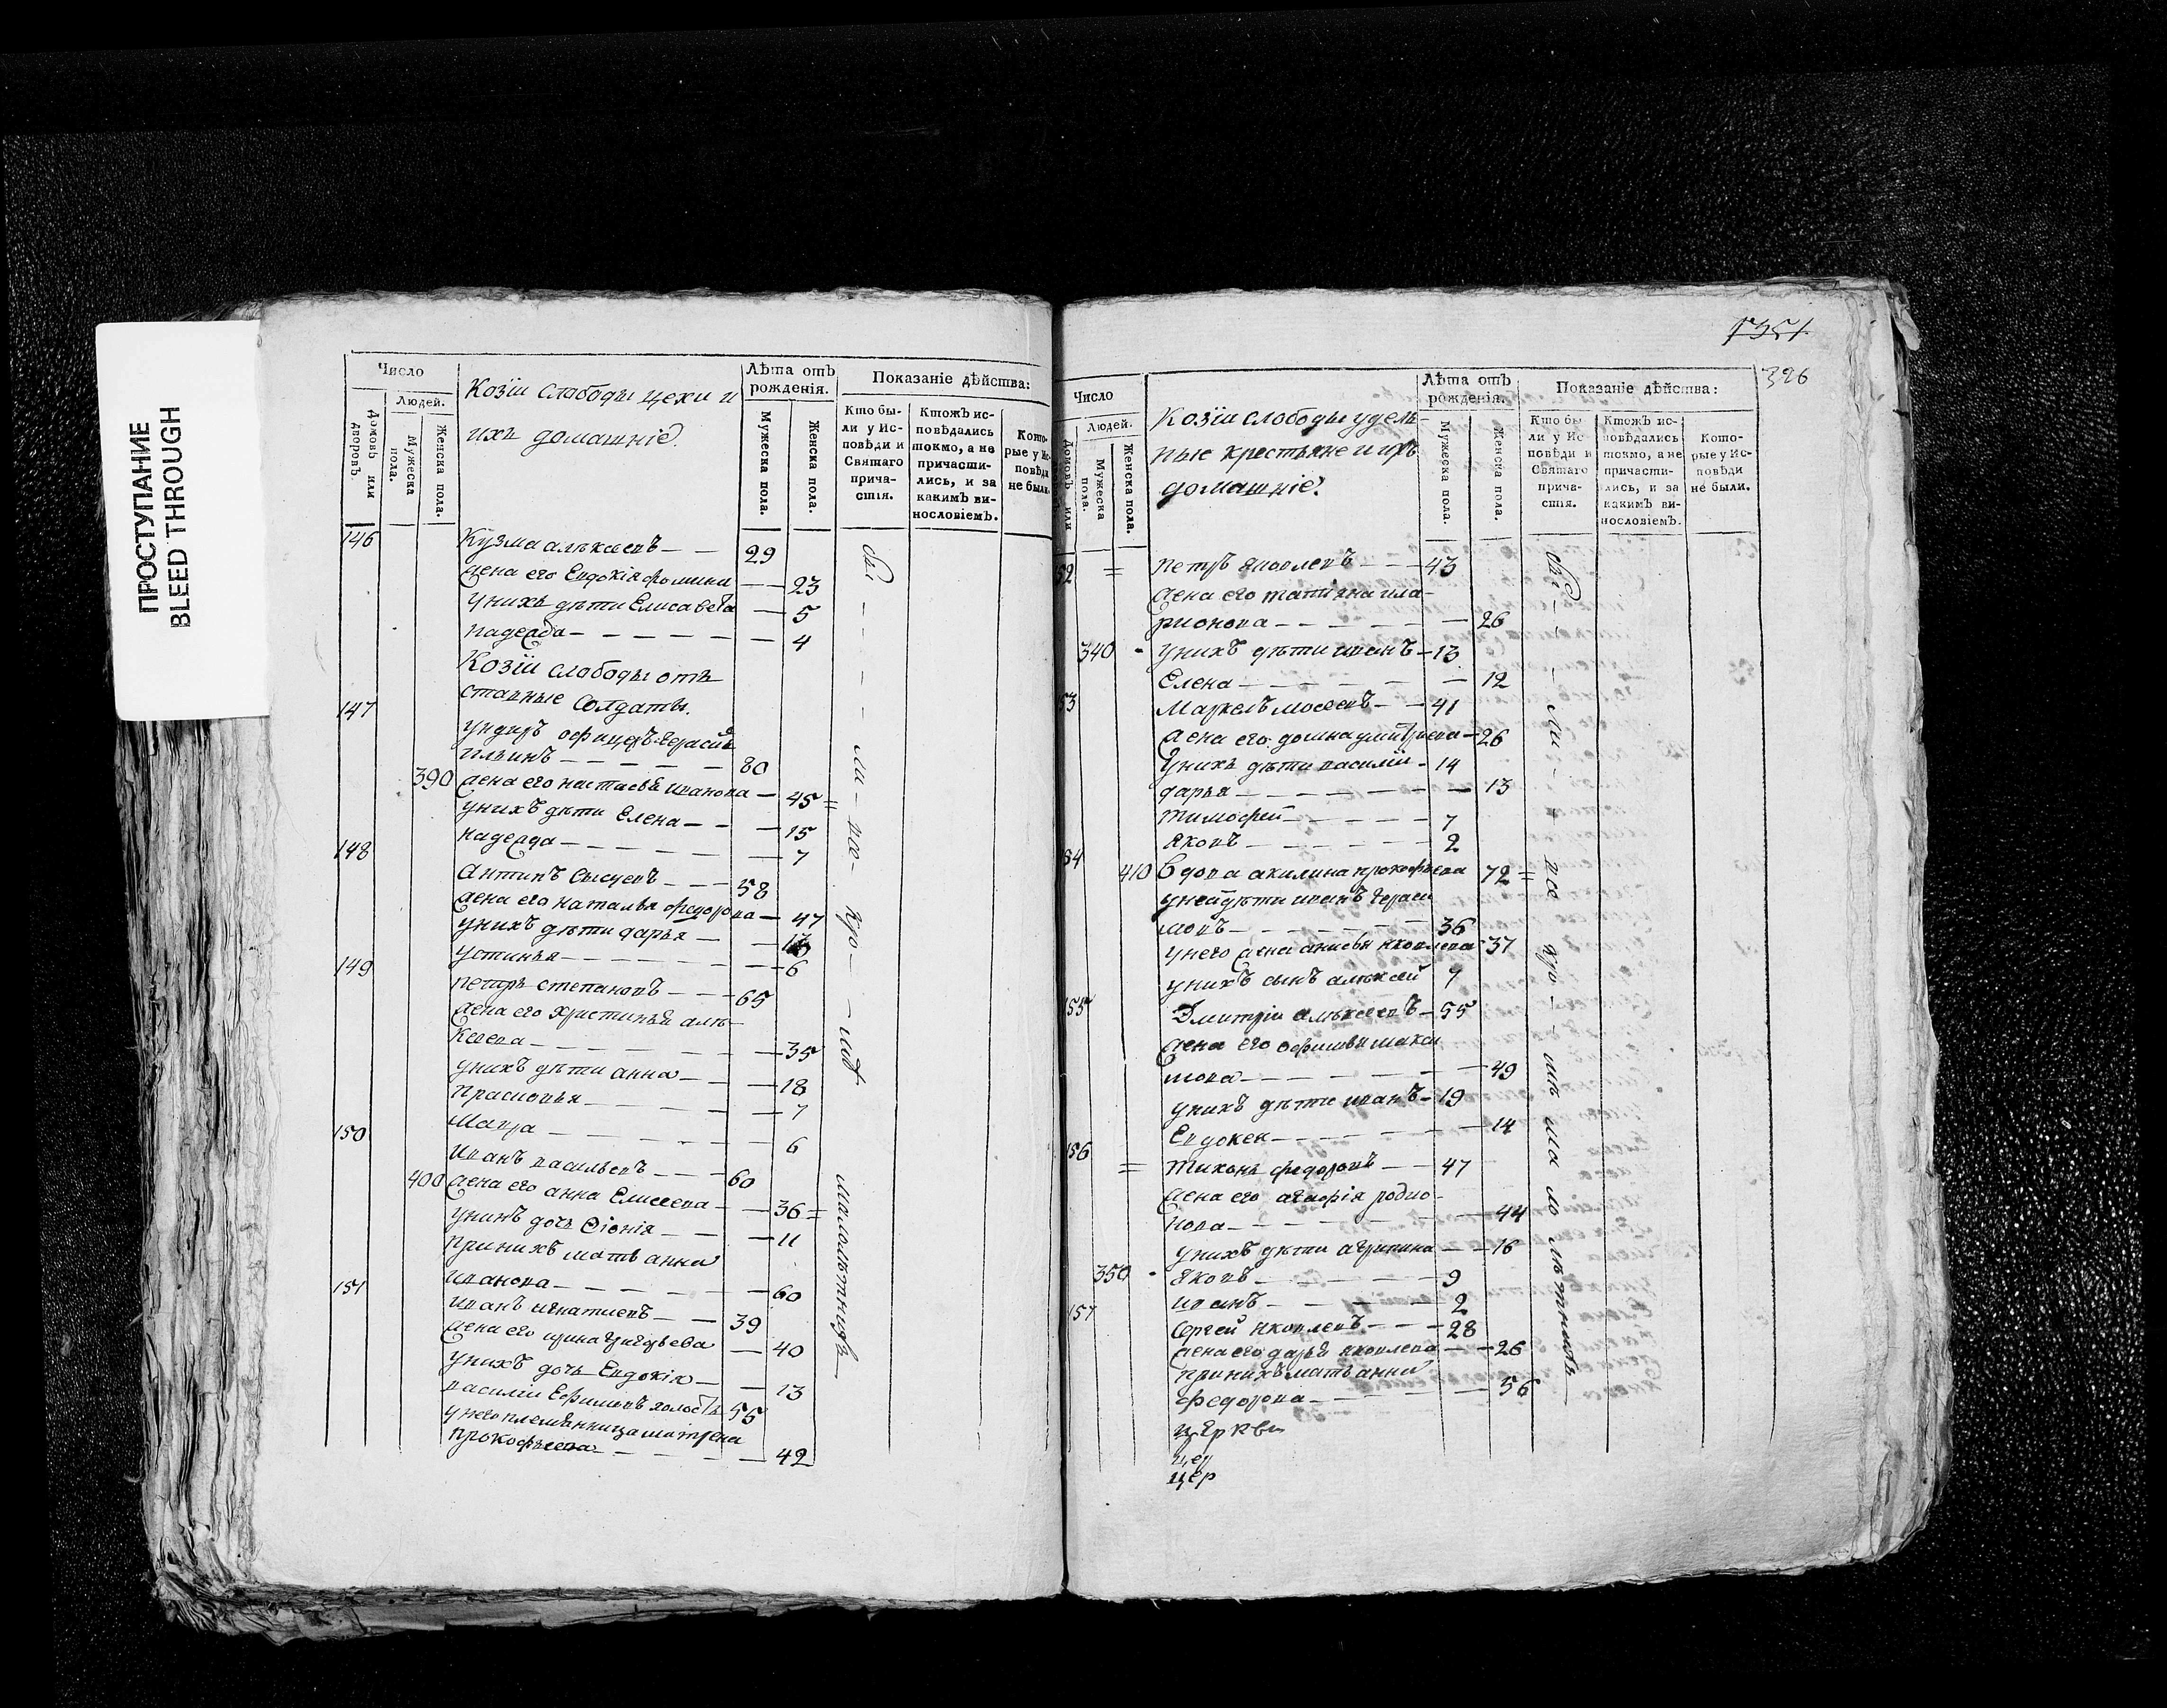 ПРОСТУПАНИЕ
BLEED THROUGH
Число
Людей.
Домовъ или дворовъ.
Мужеска пола.
Женска пола.
Козіи слабоды цехи и
ихъ домашніе.
Лѣта отъ рожденія.
Мужеска пола.
Женска пола.
Показаніе дѣйства:
Кто были у Исповѣди и Святаго причастія.
Ктожъ исповѣдались токмо, а не причастились, и за какимъ винословіемъ.
Которые у Исповѣди не были.
146 Кузма алѣксеевъ — — 29
жена его Евдокія фомина — 23
у нихъ дѣти Елисавета — 5
надежда — — — — — — 4
Козіи слабоды от
ставные Солдаты.
147 ундиръ офицеръ Герасим
ильинъ — — — — — 80
390 жена его настасья иванова — 45 =
у нихъ дѣти Елена — — — 15
надежда — — — — — — 7
148 антипъ — — 58
жена его наталья федорова — 47
у нихъ дѣти дарья — —
устинья — — — — — — 6
149 петръ степановъ — — 65
жена его христинья алѣ-
ксеева — — — — — — 35
у нихъ дѣти анна — — — 18
прасковья — — — — — 7
мавра — — — — — — 6
150 иванъ васильевъ — — — 60
400 жена его анна Елисеева — — 36 =
у нихъ дочь — — — 11
при нихъ мать анна
иванова — — — — — — 60
151 иванъ игнатиевъ — — 39
жена его ирина — 40
у нихъ дочь Евдокія — — 13
василіи Ефимовъ холостъ 55
у него племянница матрена
прокофьева — — — — — 42
малолѣтнихъ
1351
326
Число
Людей.
Домовъ или
Мужеска пола.
Женска пола.
Козіи слободы удель-
ные крестьяне и ихъ
домашніе.
Лѣта отъ рожденія.
Мужеска пола.
Женска пола.
Показаніе дѣйства:
Кто были у Исповѣди и Святаго причастія.
Ктожъ исповѣдались токмо, а не причастились, и за какимъ винословіемъ.
Которые у Исповѣди не были.
52 = петръ яковлевъ — — — 43
жена его татіяна ила-
рионова — — — — — — 26
340 - у нихъ дѣти иванъ — 13
Елена — — — — — — 12
53 маркелъ мосеевъ — — 41
жена его домна дмитриева — 26
у нихъ дѣти василіи — 14
дарья — — — — — — 13
тимофеи — — — — — 7
яковъ — — — — — — 2
54 410 вдова акилина прокофьева 72 =
у ней дѣти иванъ Гераси
мовъ — — — — — — 36
у него жена анисья яковлева 37
у нихъ сынъ алѣксей 7
155 Дмитріи алѣксеевъ — 55
жена его офимья макси
мова — — — — — — 49
у нихъ дѣти иванъ — 19
Евдокея — — — — — — 14
156 = тихонъ федоровъ — — 47
жена его агафія родио-
нова — — — — — — 44
у нихъ дѣти агрипина — — 16
350 - яковъ — — — — — 9
иванъ — — — — — — 2
157 Сергей яковлевъ — — — 28
жена его дарья яковлева — — 26
при нихъ мать анна
федорова — — — — — — 56
церкви
цер
цер